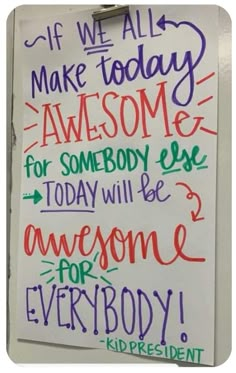 ~IF WE ALL
Make today
AWESOMe
for SOMEBODY else
TODAY will be
awesome
for
EVERYBODY!
-KID PRESIDENT